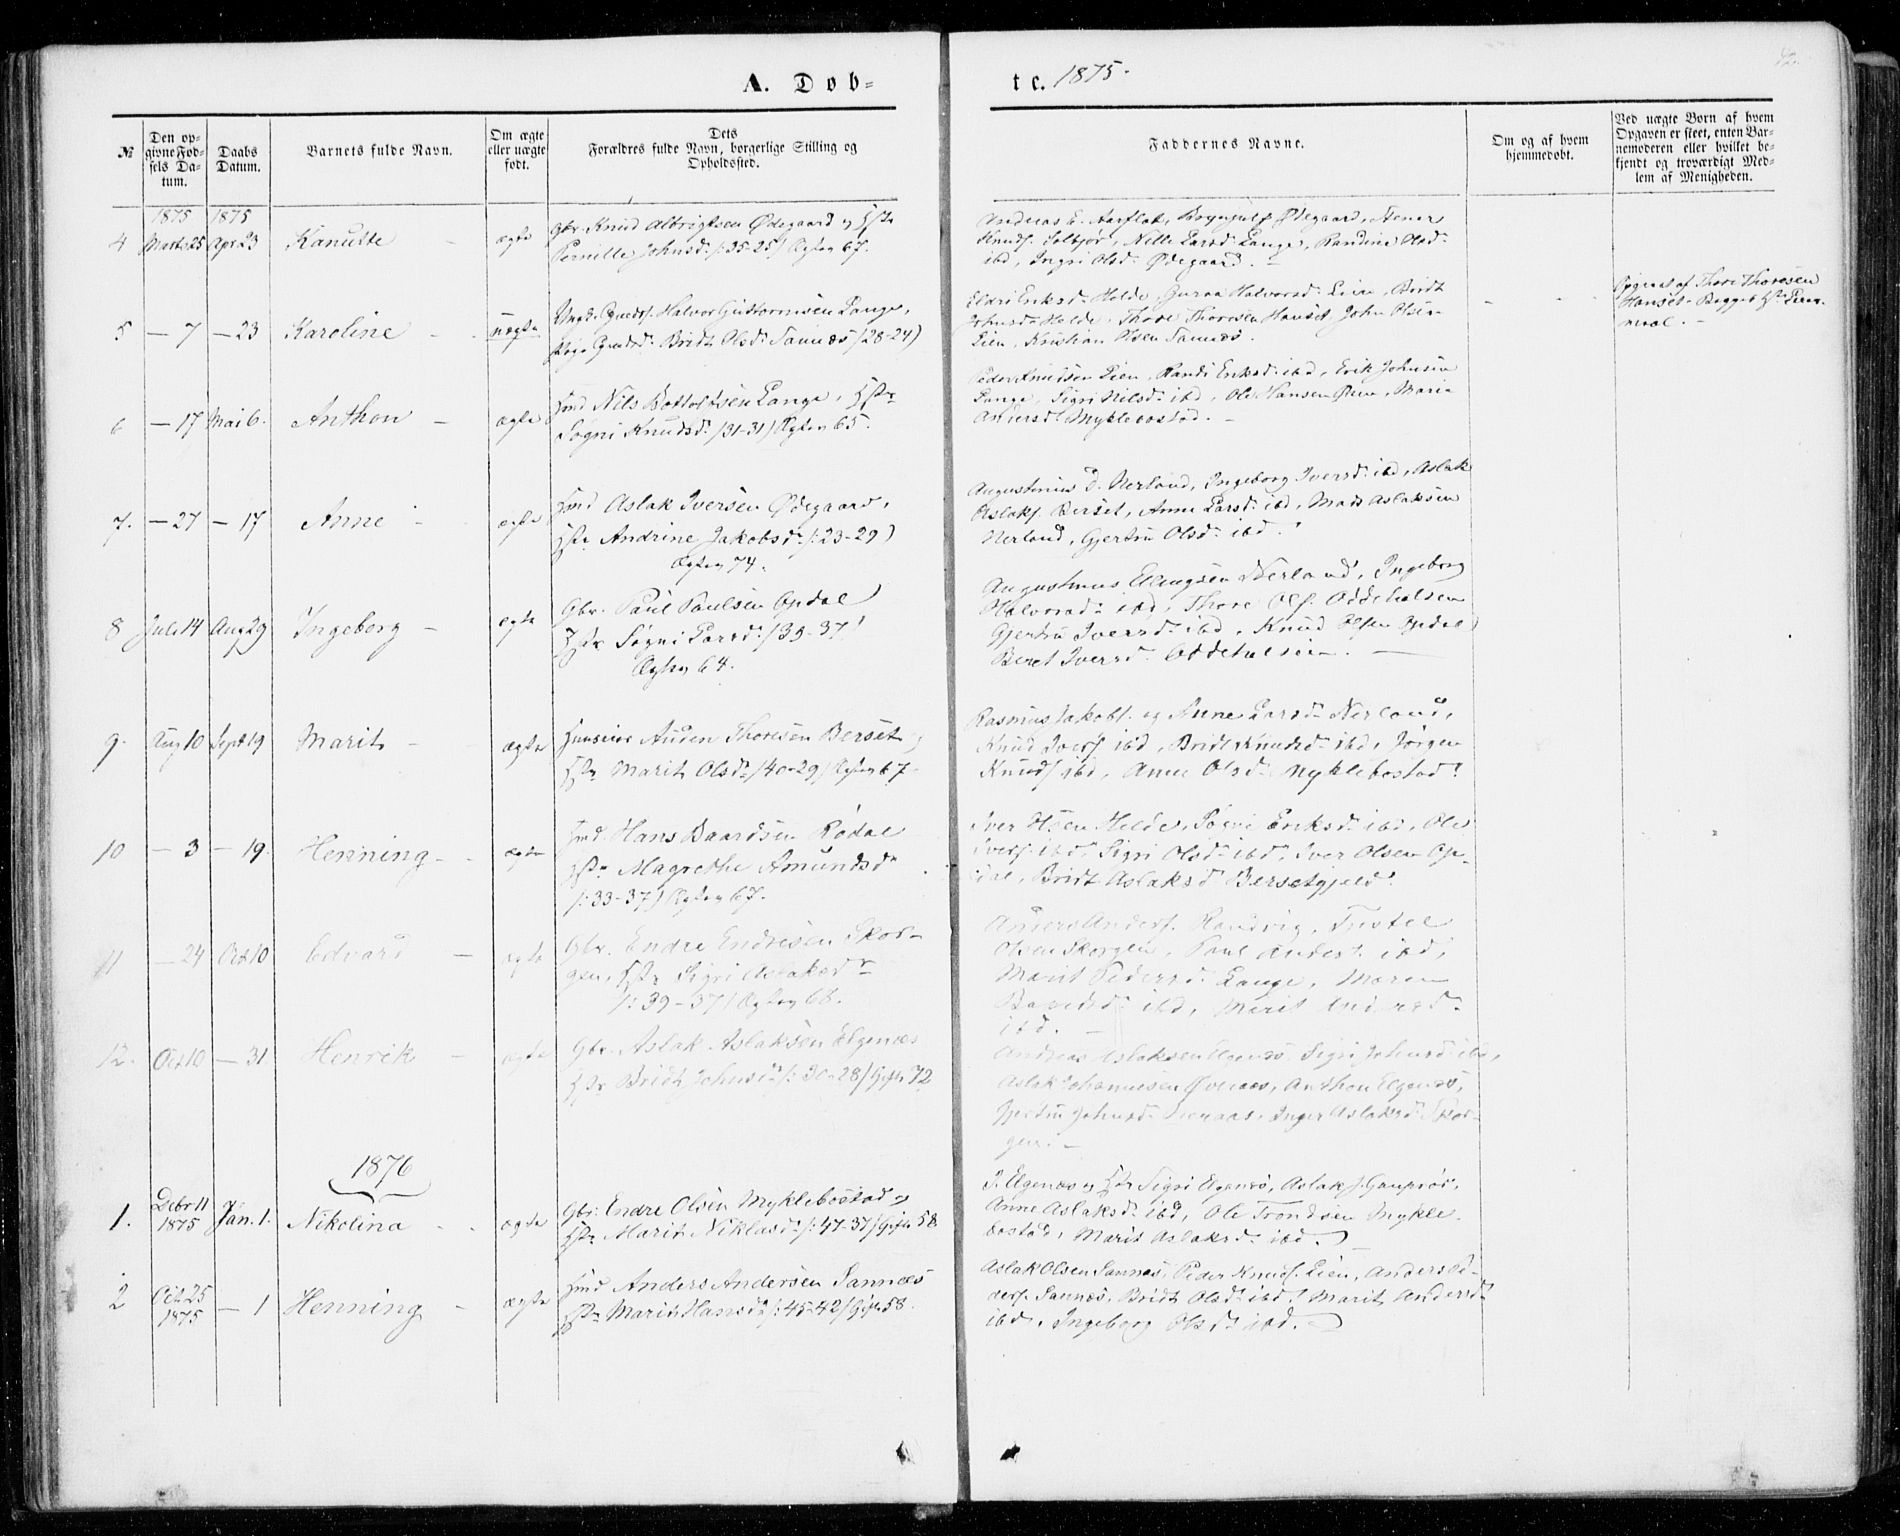 A. Døb-
te. 1875.
№
Den op-
givne Fød-
sels Da-
tum.
Daabs
Datum.
Barnets fulde Navn.
Om ægte
eller uægte
født.
Dets
Forældres fulde Navn, borgerlige Stilling og
Opholdssted.
Faddernes Navne.
Om og af hvem
hjemmedøbt.
Ved uægte Børn af hvem
Opgaven er skeet, enten Bar-
nemoderen eller hvilket be-
kjendt og troværdigt Med-
lem af Menigheden.
1875 1875
4 Marts 25 Apr. 23 Kanutte - ægte
Gbr. Knud Albrigtsen Ødegaard og Hstr
Pernille Johnsd. /:35-25/ Ægtev 67.
Andreas E. Aarflot, Ødegaard, Stener
Knuds. Solbjør, Nille Larsd. Lange, Randine Olsd.
ibd, Ingri Olsd. Ødegaard. -
5 - 7 - 23 Karoline - uægte
Ungk. Halvor Guttormsen Lange,
Pige Bridt Olsd. Sannæs /28-24)
Eldri Eriksd. Helde, Guraa Halvorsd. Lien, Bridt
Johnsd. Helde, Thore Thoresen Hanset, John Olsen
Lien, Kristian Olsen Sannæs.
Opgivet af Thore Thoresen
Hanset. Begges 1ste Leier-
maal. -
6 - 17 Mai 6. Anthon - ægte
Hmd Nils Bottolfsen Lange, Hstr
Søgni Knudsd. /31-31/ Ægtev 65.
Peder Knudsen Lien, Randi Eriksd. ibd, Erik Johnsen
Lange, Sigri Nilsd. ibd, Ole Hansen, Marie
Andersd. Myklebostad. -
7. - 27 - 17 Anne - ægte
Hmd Aslak Iversen Ødegaard,
Hstr Andrine Jakobsd. /:23-29)
Ægtev 74.
Augustinius D. Nerland, Ingeborg Iversd. ibd, Aslak
Aslaks. Berset, Anne Larsd. ibd, Mads Aslaksen
Nerland, Gjertru Olsd. ibd.
8 Juli 14 Aug 29 Ingeborg - ægte
Gbr. Paul Paulsen Opdal
Hstr Søgni Larsd. /39-37/
Ægtev 64.
Augustinus Ellingsen Nerland, Ingeborg
Halvorsd. ibd, Thore Ols. Oddehalsen
Gjertru Iversd. ibd, Knud Olsen Opdal
Beret Iversd. Oddehalsen. -
9. Aug 10 Sept 19 Marit - ægte
Auden Thoresen Berset og
Hstr Marit Olsd. /40-29/ Ægtev 67.
Rasmus Jakobs. og Anne Larsd. Nerland,
Knud Ivers. ibd, Bridt Knudsd. ibd, Jørgen
Knuds. ibd, Anne Olsd. Myklebostad.
10 - 3 - 19. Henning - ægte
Hmd. Hans Baardsen Rødal
Hstr Magrethe Amundsd
/:33-37/ Ægtev 67.
Iver Helde, Søgni Eriksd. ibd, Ole
Ivers. ibd, Sigri Olsd. ibd, Iver Olsen Op-
dal, Bridt Aslaksd. Bersetgjeld.
11 - 24 Oct 10 Edvard - ægte
Gbr. Endre Endresen Skor-
gen, Hstr Sigri Aslaksdr
/:39-37/ Ægtev 68.
Anders Anders. Randvig, Tøstel
Olsen Skorgen, Paul Anders. ibd,
Marit Pedersd. Lange, Maren
ibd, Marit Andersd.
ibd. -
12. Oct 10 - 31 Henrik - ægte
Gbr. Aslak Aslaksen Elgenæs
Hstr Bridt Johnsd. /:30-28/ Gift 72
Andreas Aslaksen Elgenæs, Sigri Johnsd. ibd,
Aslak Johannesen Øveraas, Anthon Elgenæs,
Gjertru Johnsd. Øveraas, Inger Aslaksd. Skor-
gen. -
1876
1. Decbr 11
1875 Jan. 1. Nikolina - ægte
Gbr. Endre Olsen Myklebostad og
Hstr Marit Niklasd. /:47-37/ Gift 58
Elgenæs og Hstr Sigri Elgenæs, Aslak J. Gauprør,
Anne Aslaksd. ibd, Ole Trondsen Mykle-
bostad, Marit Aslaksd. ibd.
2 Oct. 25
1875 - 1 Henning - ægte
Hmd Anders Andersen Sannæs
Hstr Marit Hansd. /:45-42/ Gift 58.
Aslak Olsen Sannæs, Peder Knuds. Lien, Anders An-
ders. Sannæs, Bridt Olsd. ibd, Marit Andersd.
ibd, Ingeborg Olsd. ibd.